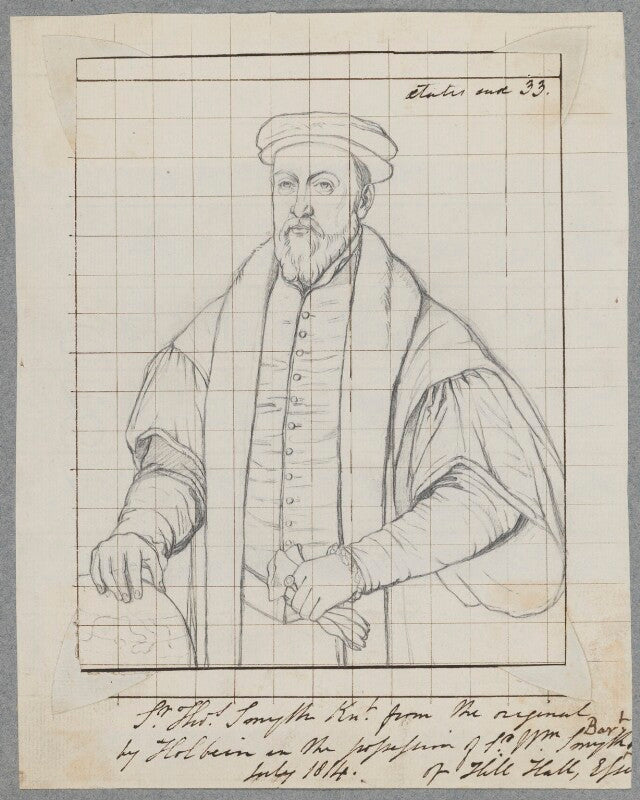 ætatis suæ 33.
Sr. Thos. Smythe Knt. from the original
by Holbein in the possession of Sr. Wm. Smythe Bart
July 1814. of Hill Hall, Essex